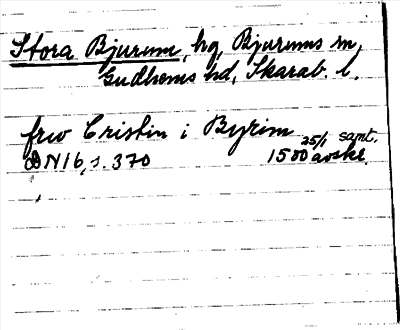 Stora Bjurum, hg, Bjurums sn,
Gudhems hd, Skarab. l.
frw Cristin i Byrim 25/1 samt.
DN 16, s. 370 1500 avskr.